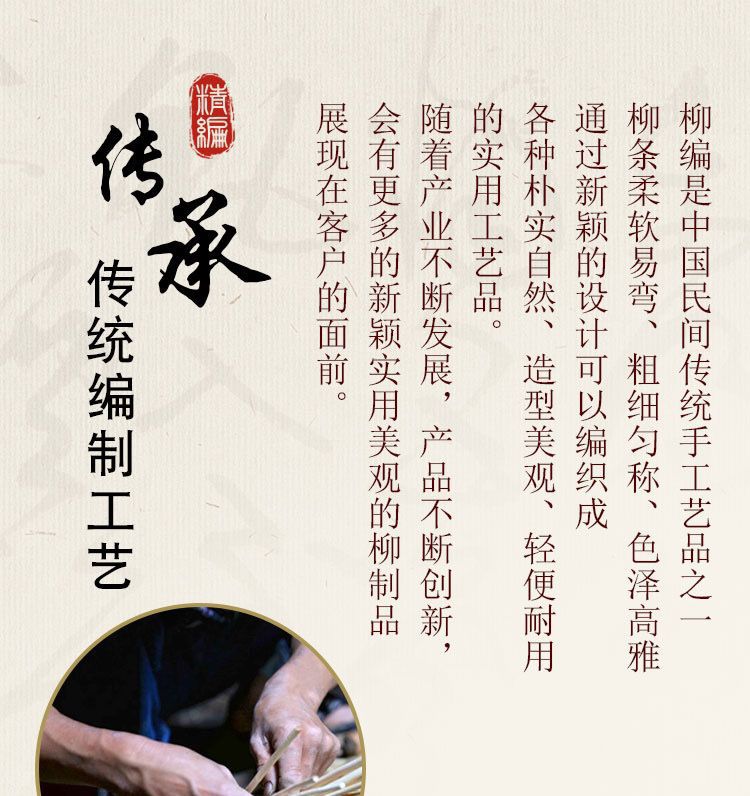 柳编是中国民间传统手工艺品之一
柳条柔软易弯、粗细匀称、色泽高雅
通过新颖的设计可以编织成
各种朴实自然、造型美观、轻便耐用
的实用工艺品。
随着产业不断发展，产品不断创新，
会有更多的新颖实用美观的柳制品
展现在客户的面前。
精编
传承
传统编制工艺